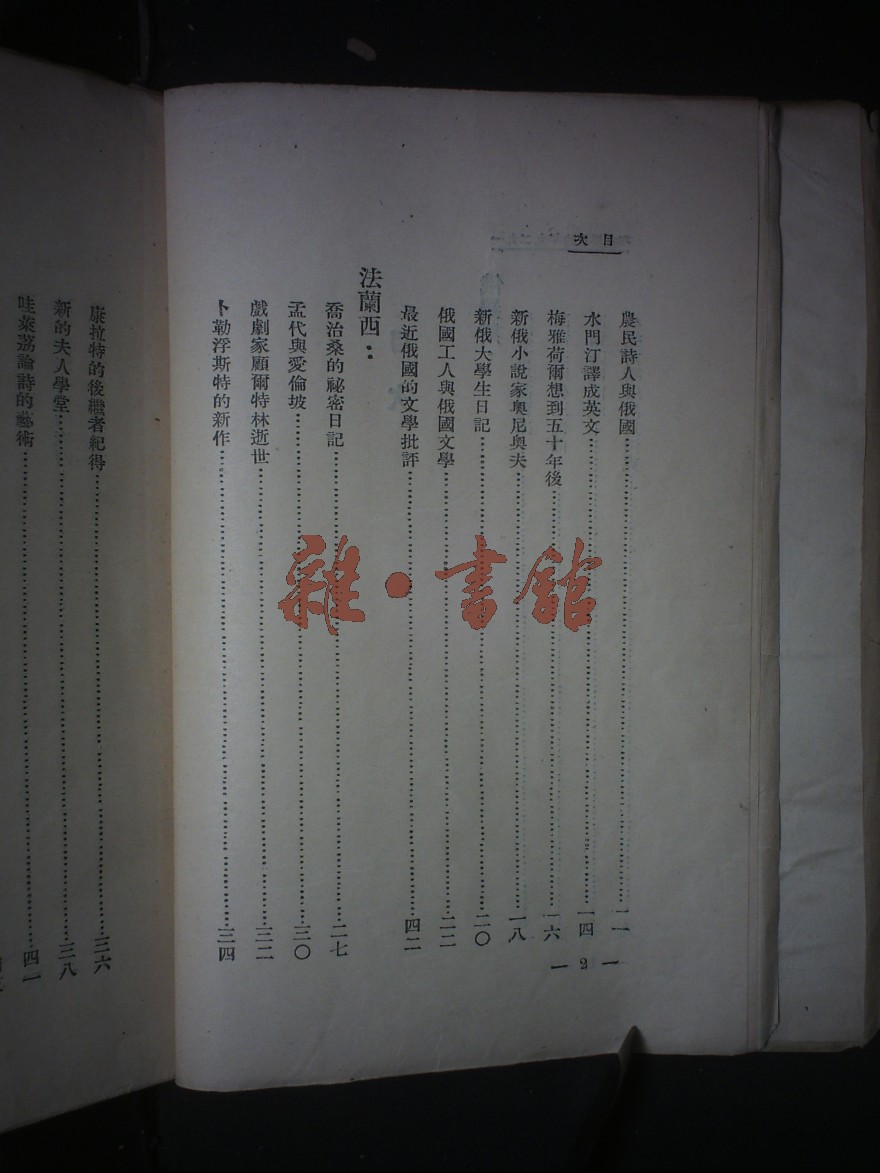 目次
農民詩人與俄國……一一
水門汀譯成英文……一四
梅雅荷爾想到五十年後……一六
新俄小說家奧尼奧夫……一八
新俄大學生日記……二〇
俄國工人與俄國文學……二二
最近俄國的文學批評……四二
法蘭西：
喬治桑的祕密日記……二七
孟代與愛倫坡……三〇
戲劇家顧爾特林逝世……三二
卜勒浮斯特的新作……三四
— 2 —
康拉特的後繼者紀得……三六
新的夫人學堂……三八
哇萊荔論詩的藝術……四一
雜·書館